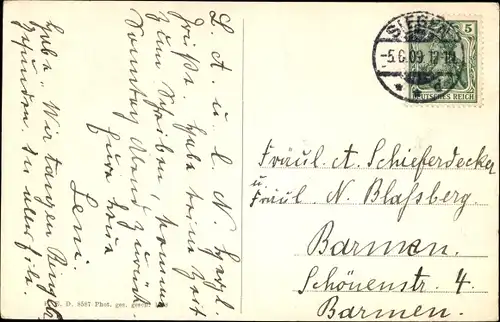 L. A. u. L. N. Herzl.
Grüße, habe keine Zeit
zum Schreiben, komme
Sonntag Abend zurück
Eure treue
Leni.
Habe „Wir tanzen Ringel
gefunden. In aller Eile.
SIEGBURG
-5.6.09. 12-1N
5
DEUTSCHES REICH
Fräul. A. Schieferdecker
u.
Fräul. N. Blaßberg
Barmen.
Schönenstr. 4.
Barmen.
D. 8597 Phot. ges. gesch.